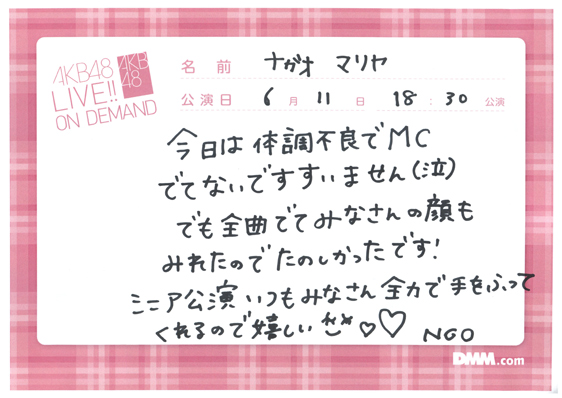 AKB48
LIVE!!
ON DEMAND
AKB
48
名 前 ナガオ マリヤ
公演日 6 月 11 日 18 : 30 公演
今日は体調不良でMC
でてないですすいません(泣)
でも全曲でてみなさんの顔も
みれたのでたのしかったです!
シニア公演いつもみなさん全力で手をふって
くれるので嬉しい ♡♡ NGO
DMM.com